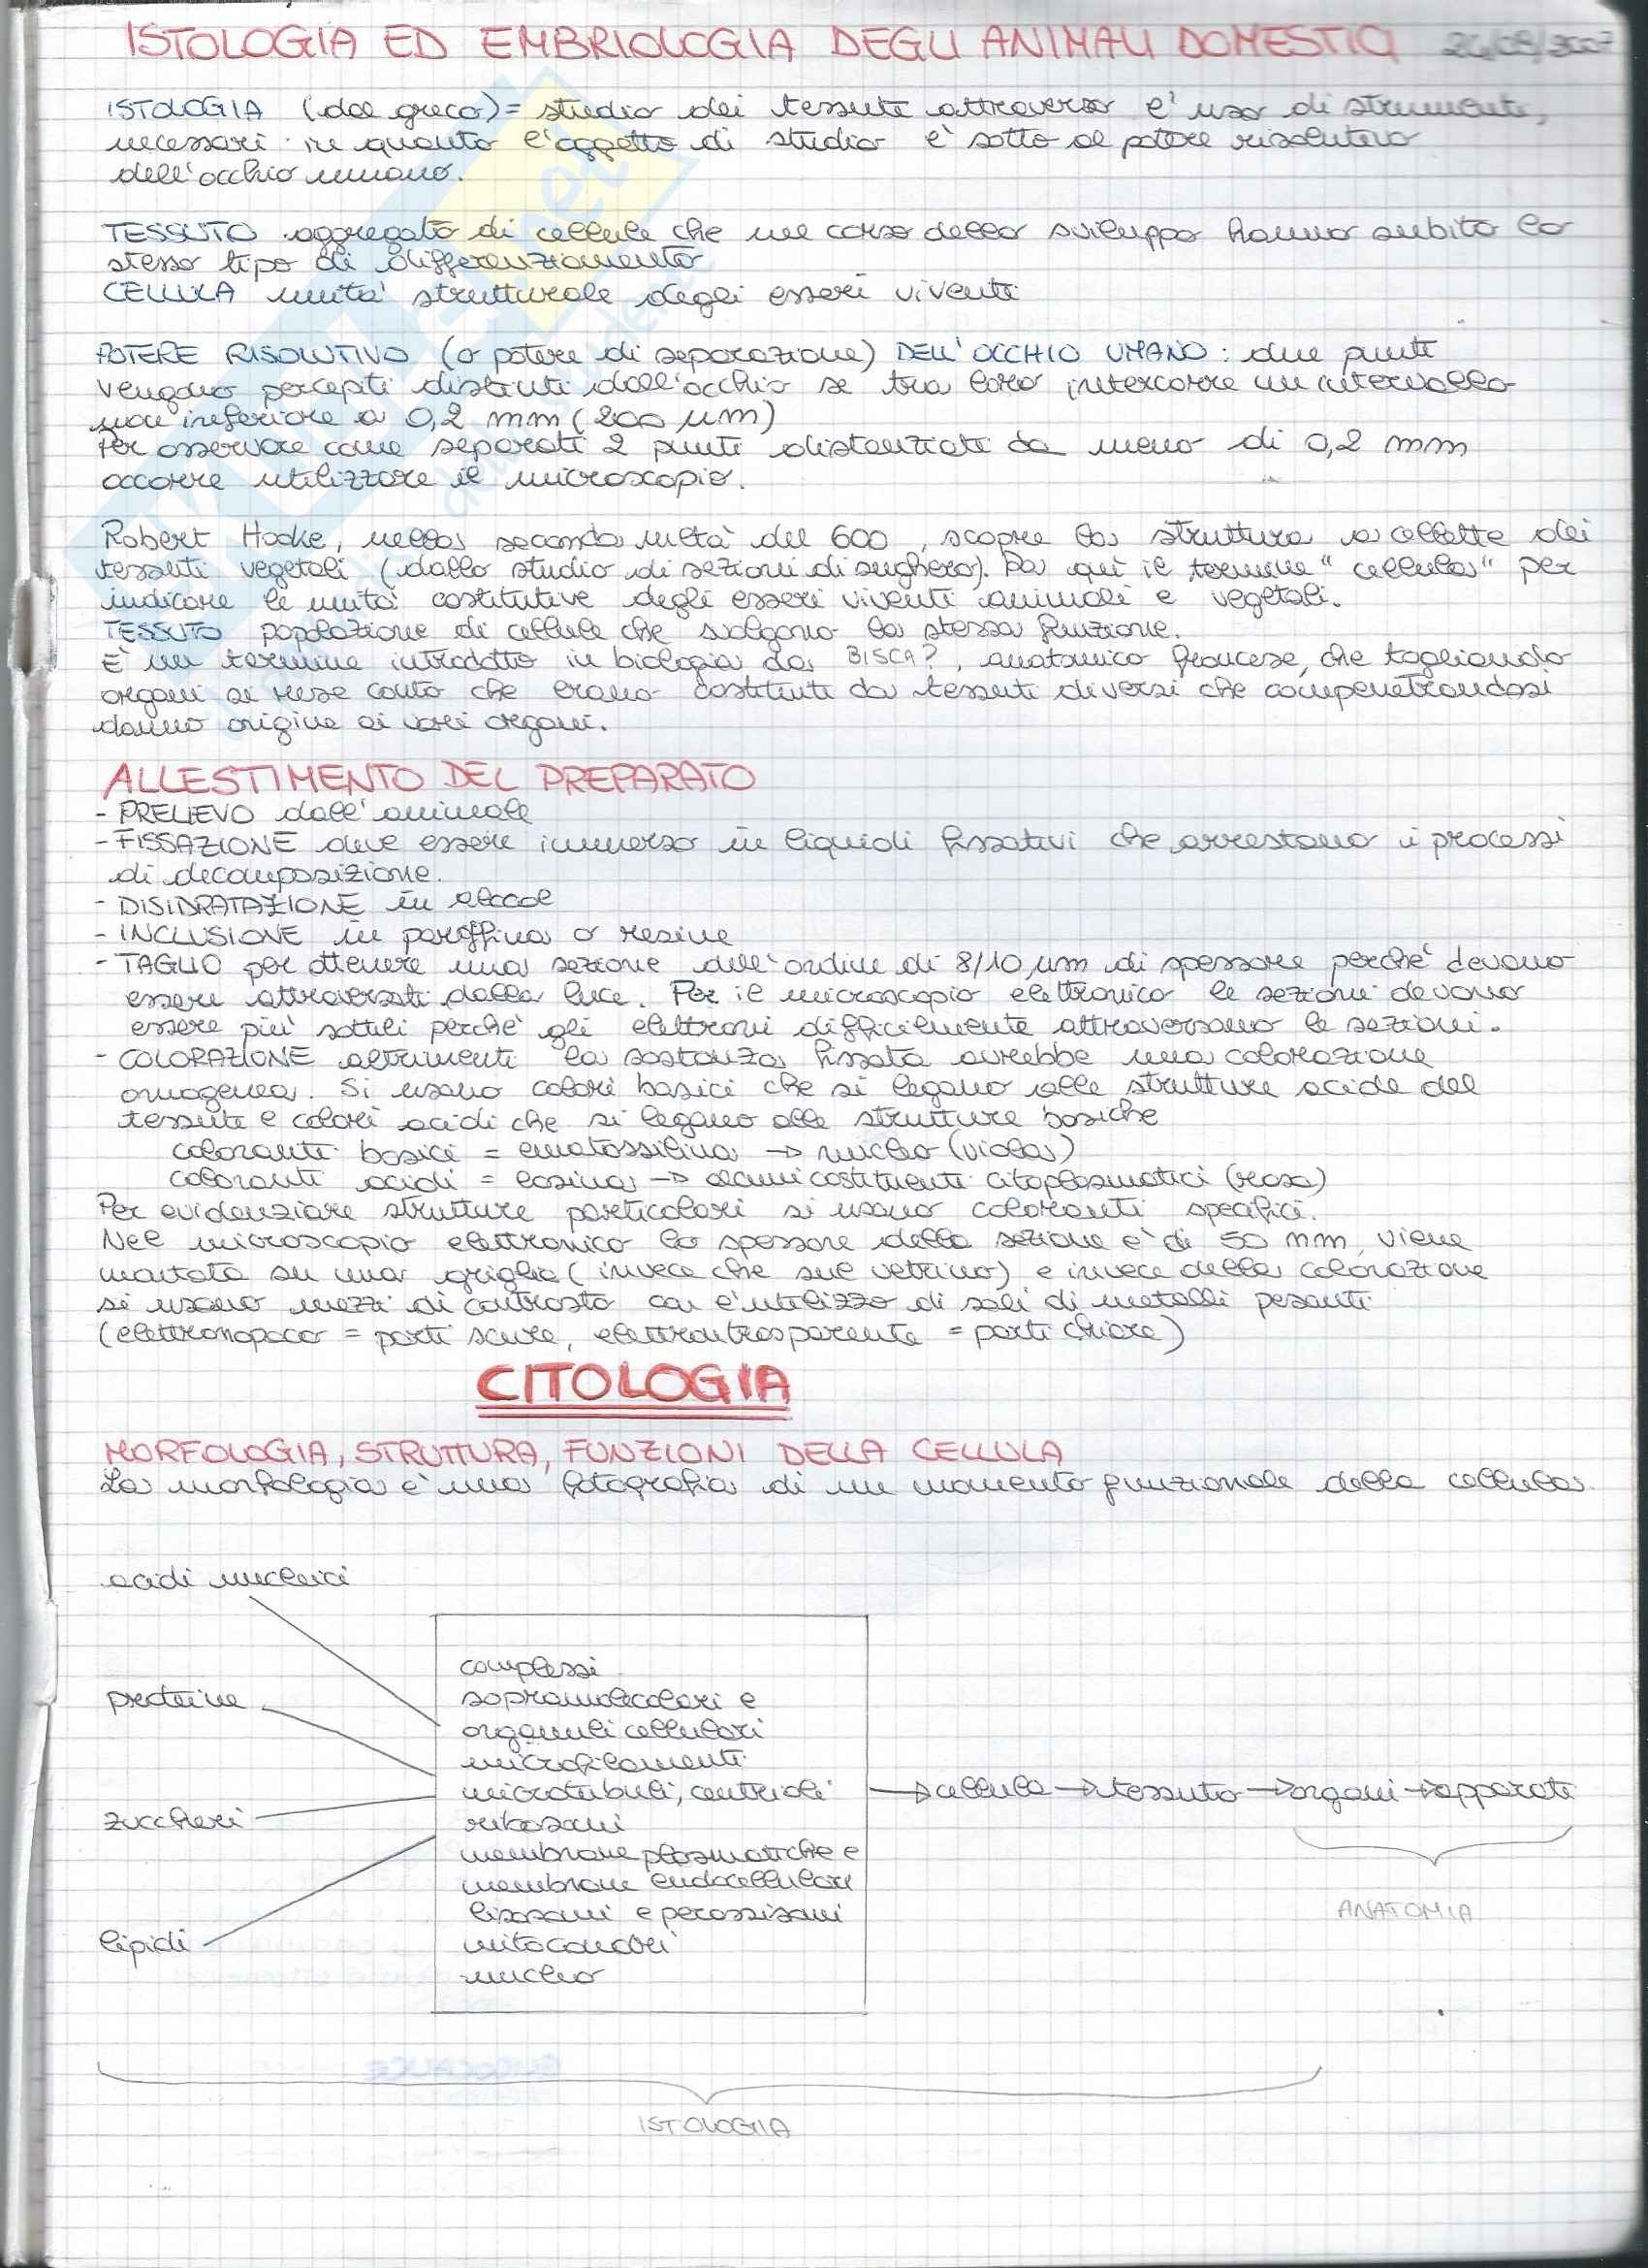 ISTOLOGIA ED EMBRIOLOGIA DEGLI ANIMALI DOMESTICI 24/09/2007
ISTOLOGIA (dal greco) = studio dei tessuti attraverso l'uso di strumenti,
necessari in quanto l'oggetto di studio è sotto al potere risolutivo
dell'occhio umano.
TESSUTO aggregato di cellule che nel corso dello sviluppo hanno subito lo
stesso tipo di differenziamento
CELLULA unità strutturale degli esseri viventi
POTERE RISOLUTIVO (o potere di separazione) DELL'OCCHIO UMANO: due punti
vengono percepiti distinti dall'occhio se tra loro intercorre un intervallo
non inferiore a 0,2 mm (200 µm)
Per osservare come separati 2 punti distanziati da meno di 0,2 mm
occorre utilizzare il microscopio.
Robert Hooke, nella seconda metà del 600, scopre la struttura a cellette dei
tessuti vegetali (dallo studio di sezioni di sughero). Da qui il termine "cellula" per
indicare le unità costitutive degli esseri viventi animali e vegetali.
TESSUTO popolazione di cellule che svolgono la stessa funzione.
È un termine introdotto in biologia da BISCA?, anatomico francese, che tagliando
organi si rese conto che erano costituiti da tessuti diversi che compenetrandosi
danno origine ai vari organi.
ALLESTIMENTO DEL PREPARATO
- PRELIEVO dall'animale
- FISSAZIONE deve essere immerso in liquidi fissativi che arrestano i processi
di decomposizione.
- DISIDRATAZIONE in alcool
- INCLUSIONE in paraffina o resine
- TAGLIO per ottenere una sezione dell'ordine di 8/10 µm di spessore perché devono
essere attraversati dalla luce. Per il microscopio elettronico le sezioni devono
essere più sottili perché gli elettroni difficilmente attraversano le sezioni.
- COLORAZIONE altrimenti la sostanza fissata avrebbe una colorazione
omogenea. Si usano colori basici che si legano alle strutture acide del
tessuto e colori acidi che si legano alle strutture basiche
coloranti basici = ematossilina → nucleo (viola)
coloranti acidi = eosina → alcuni costituenti citoplasmatici (rosa)
Per evidenziare strutture particolari si usano coloranti specifici.
Nel microscopio elettronico lo spessore della sezione è di 50 nm, viene
montata su una griglia (invece che sul vetrino) e invece della colorazione
si usano mezzi di contrasto con l'utilizzo di sali di metalli pesanti
(elettronopaco = parti scure, elettrontrasparente = parti chiare)
CITOLOGIA
MORFOLOGIA, STRUTTURA, FUNZIONI DELLA CELLULA
La morfologia è una fotografia di un momento funzionale della cellula.
acidi nucleici
proteine
zuccheri
lipidi
complessi
sopramolecolari e
organuli cellulari
microfilamenti
microtubuli, centrioli
ribosomi
membrane plasmatiche e
membrane endocellulari
lisosomi e perossisomi
mitocondri
nucleo
→ cellula → tessuto → organi → apparati
ANATOMIA
ISTOLOGIA